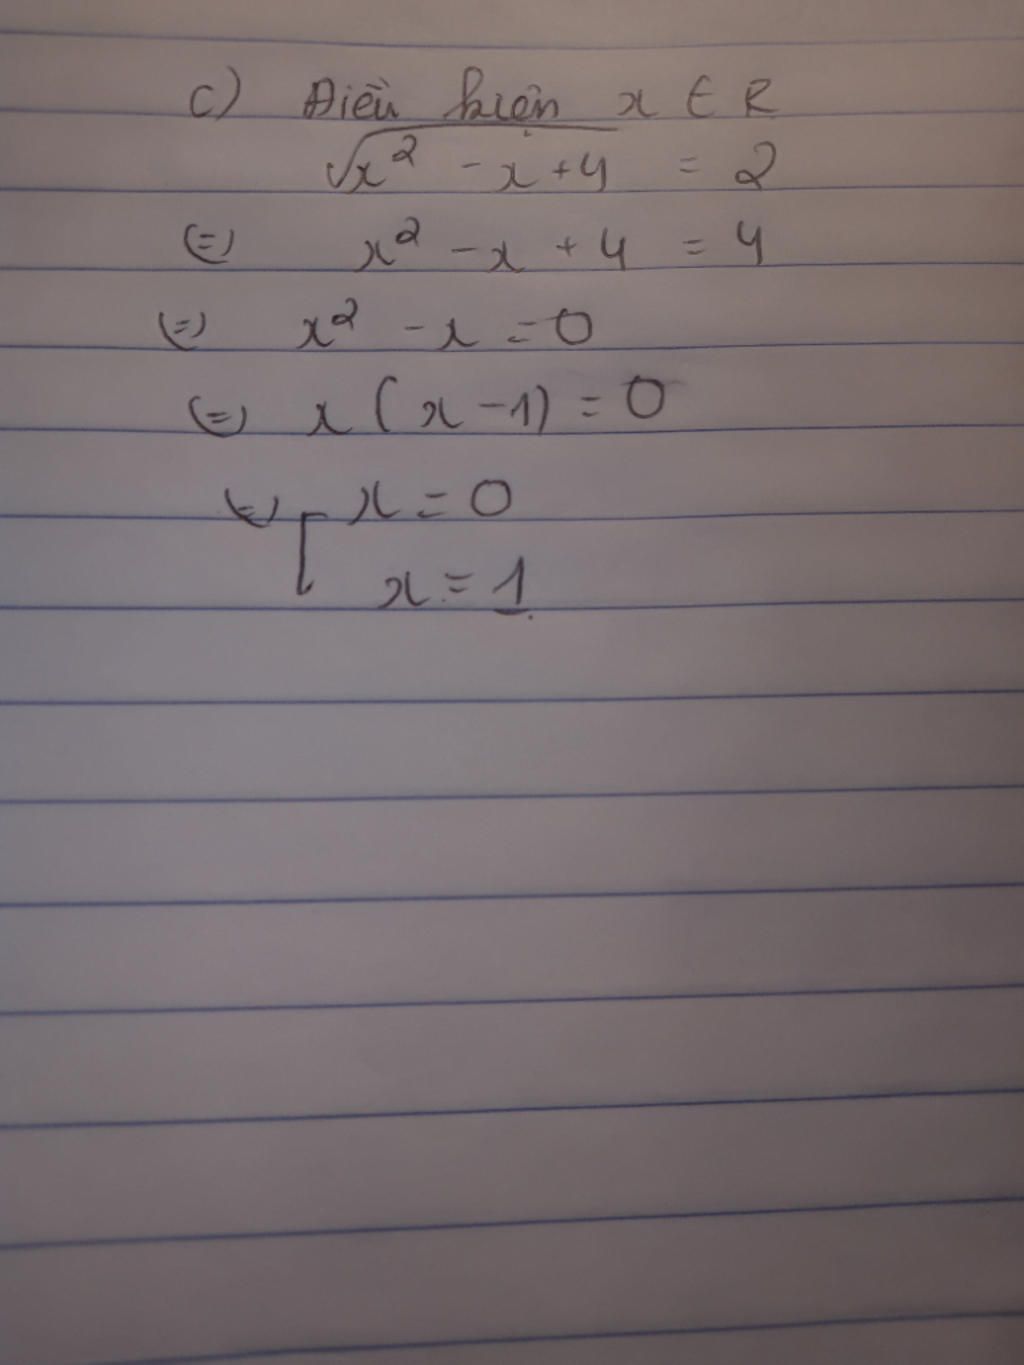 c) Điều kiện x ∈ R
√x² - x + 4 = 2
(=) x² - x + 4 = 4
(=) x² - x = 0
(=) x ( x - 1) = 0
(=) [ x = 0
x = 1